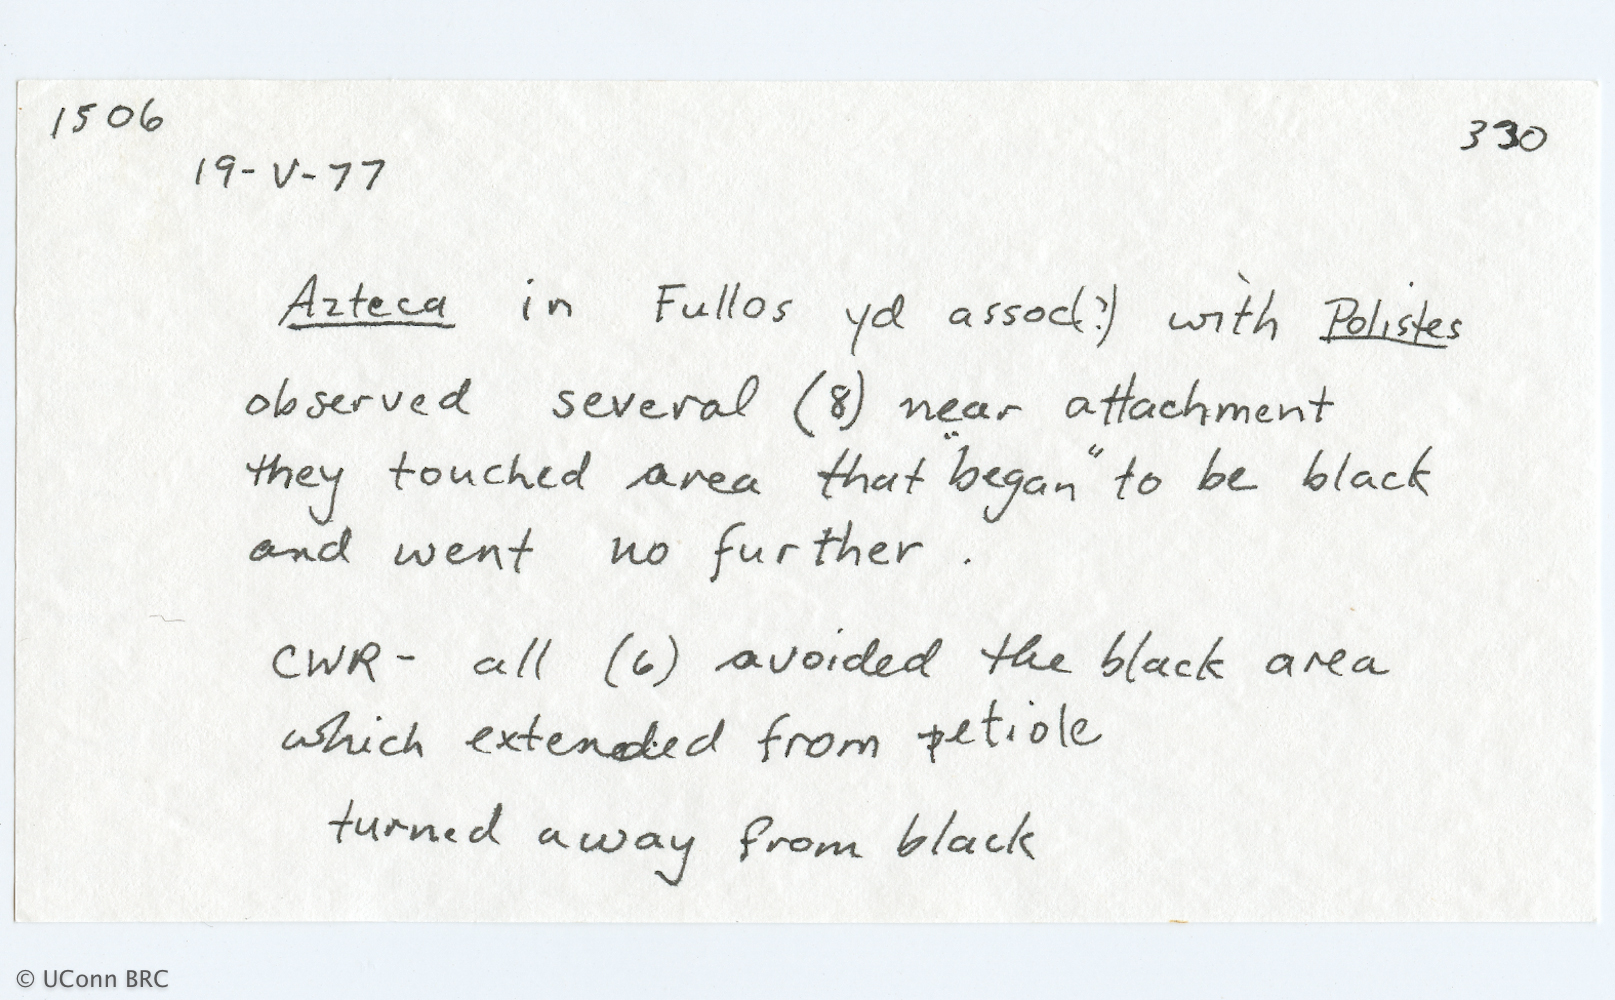 1506
330
19-V-77
Azteca in Fullos yd assoc(?) with Polistes
observed several (8) near attachment
they touched area that "began" to be black
and went no further.
CWR - all (6) avoided the black area
which extended from petiole
turned away from black
© UConn BRC